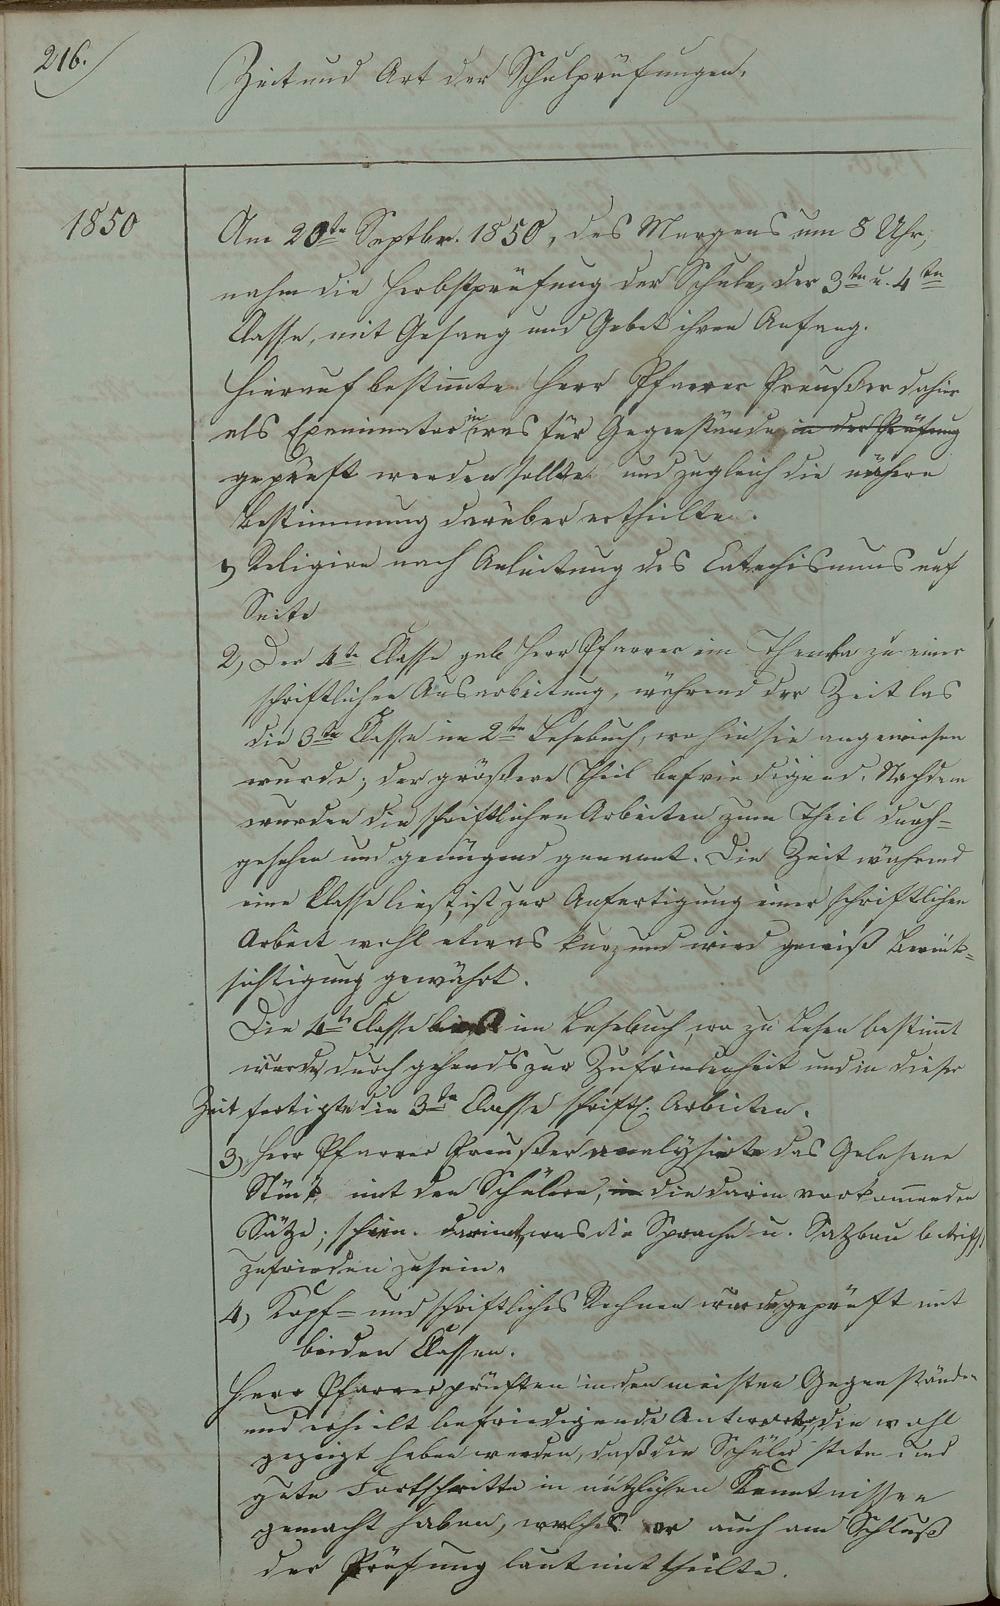 216.
Zeit und Art der Schulprüfungen.
1850
Am 20te Septbr. 1850, des Morgens um 8 Uhr,
nahm die Herbstprüfung der Schule, der 3te u. 4te
Classe, mit Gesang und Gebet ihren Anfang.
Hierauf bestimmte Herr Pfarrer Preußer dahier
als Examinator in was für Gegenstände in der Prüfung
geprüft werden sollte und zugleich die nähere
Bestimmung darüber ertheilte.
1, Religion nach Anleitung des Catechismus auf
Seite
2, Der 4te Classe gab Herr Pfarrer ein Thema zu einer
schriftlichen Ausarbeitung, während der Zeit las
die 3te Classe im 2te Lesebuch, wohin sie angewiesen
wurde; der größere Theil befriedigend. Nachdem
wurden die schriftlichen Arbeiten zum Theil durch=
gesehen und genügend genannt. Die Zeit während
eine Classe liest, ist zur Anfertigung einer schriftlichen
Arbeit wohl etwas kurz und wird gewiß Berück=
sichtigung gewährt.
Die 4te Classe ließt im Lesebuch, wo zu lesen bestimt
wurde, durchgehends zur Zufriedenheit und in dieser
Zeit fertigte die 3te Classe schriftl. Arbeiten.
3, Herr Pfarrer Preußer analysirte das Gelesene
Stück mit den Schülern, in die darin vorkommenden
Sätze; schien damit, was die Sprache u. Satzbau betrifft,
zufrieden zu sein.
4, Kopf= und schriftliches Rechnen wurde geprüft mit
beiden Classen.
Herr Pfarrer prüften in den meisten Gegenständen
und erhielt befriedigende Antworten, die wohl
gezeigt haben werden, daß die Schüler stete und
gute Fortschritte in nützlichen Kenntnissen
gemacht haben, welches er auch am Schluß
der Prüfung laut mittheilte.